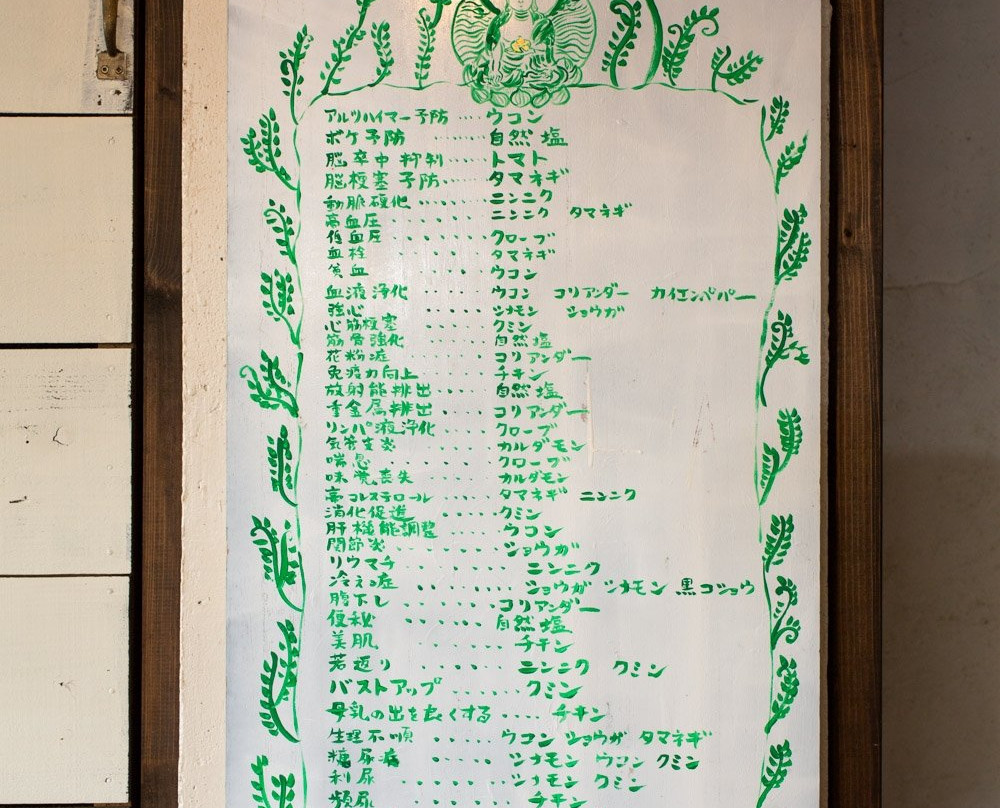 アルツハイマー予防 ････ ウコン
ボケ予防 ･････ 自然塩
脳卒中抑制 ･････ トマト
脳梗塞予防 ･････ タマネギ
動脈硬化 ･････ ニンニク
高血圧 ･････ ニンニク タマネギ
低血圧 ･････ クローブ
血栓 ･････ タマネギ
貧血 ･････ ウコン
血液浄化 ･････ ウコン コリアンダー カイエンペパー
強心 ･････ シナモン ショウガ
心筋梗塞 ･････ クミン
筋骨強化 ･････ 自然塩
花粉症 ･････ コリアンダー
免疫力向上 ･････ チキン
放射能排出 ･････ 自然塩
重金属排出 ････ コリアンダー
リンパ液浄化 ････ クローブ
気管支炎 ･････ カルダモン
喘息 ･････ クローブ
味覚喪失 ･････ カルダモン
高コレステロール ･････ タマネギ ニンニク
消化促進 ･････ クミン
肝機能調整 ･････ ウコン
関節炎 ･･････ ショウガ
リウマチ ･･････ ニンニク
冷え症 ･･････ ショウガ シナモン 黒コショウ
腹下し ･･････ コリアンダー
便秘 ･･････ 自然塩
美肌 ･････ チキン
若返り ･････ ニンニク クミン
バストアップ ･･････ クミン
母乳の出を良くする ････ チキン
生理不順 ･････ ウコン ショウガ タマネギ
糖尿病 ･････ シナモン ウコン クミン
利尿 ･･････ シナモン クミン
頻尿 ･･････ チキン